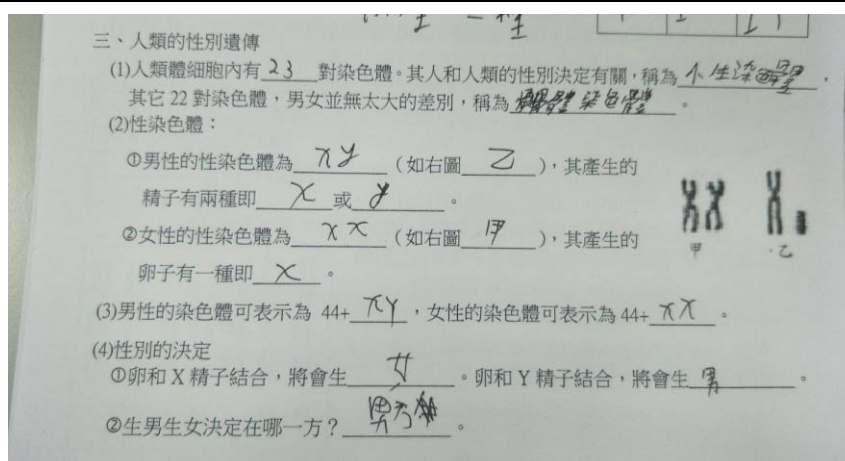 三、人類的性別遺傳
(1)人類體細胞內有 23 對染色體。其人和人類的性別決定有關，稱為 小生染色體，
其它 22 對染色體，男女並無太大的差別，稱為 體染色體。
(2)性染色體：
①男性的性染色體為 XY (如右圖 乙)，其產生的
精子有兩種即 X 或 Y。
②女性的性染色體為 XX (如右圖 甲)，其產生的
卵子有一種即 X。
甲 乙
(3)男性的染色體可表示為 44+XY，女性的染色體可表示為 44+XX。
(4)性別的決定
①卵和 X 精子結合，將會生 女。卵和 Y 精子結合，將會生 男。
②生男生女決定在哪一方？ 男方